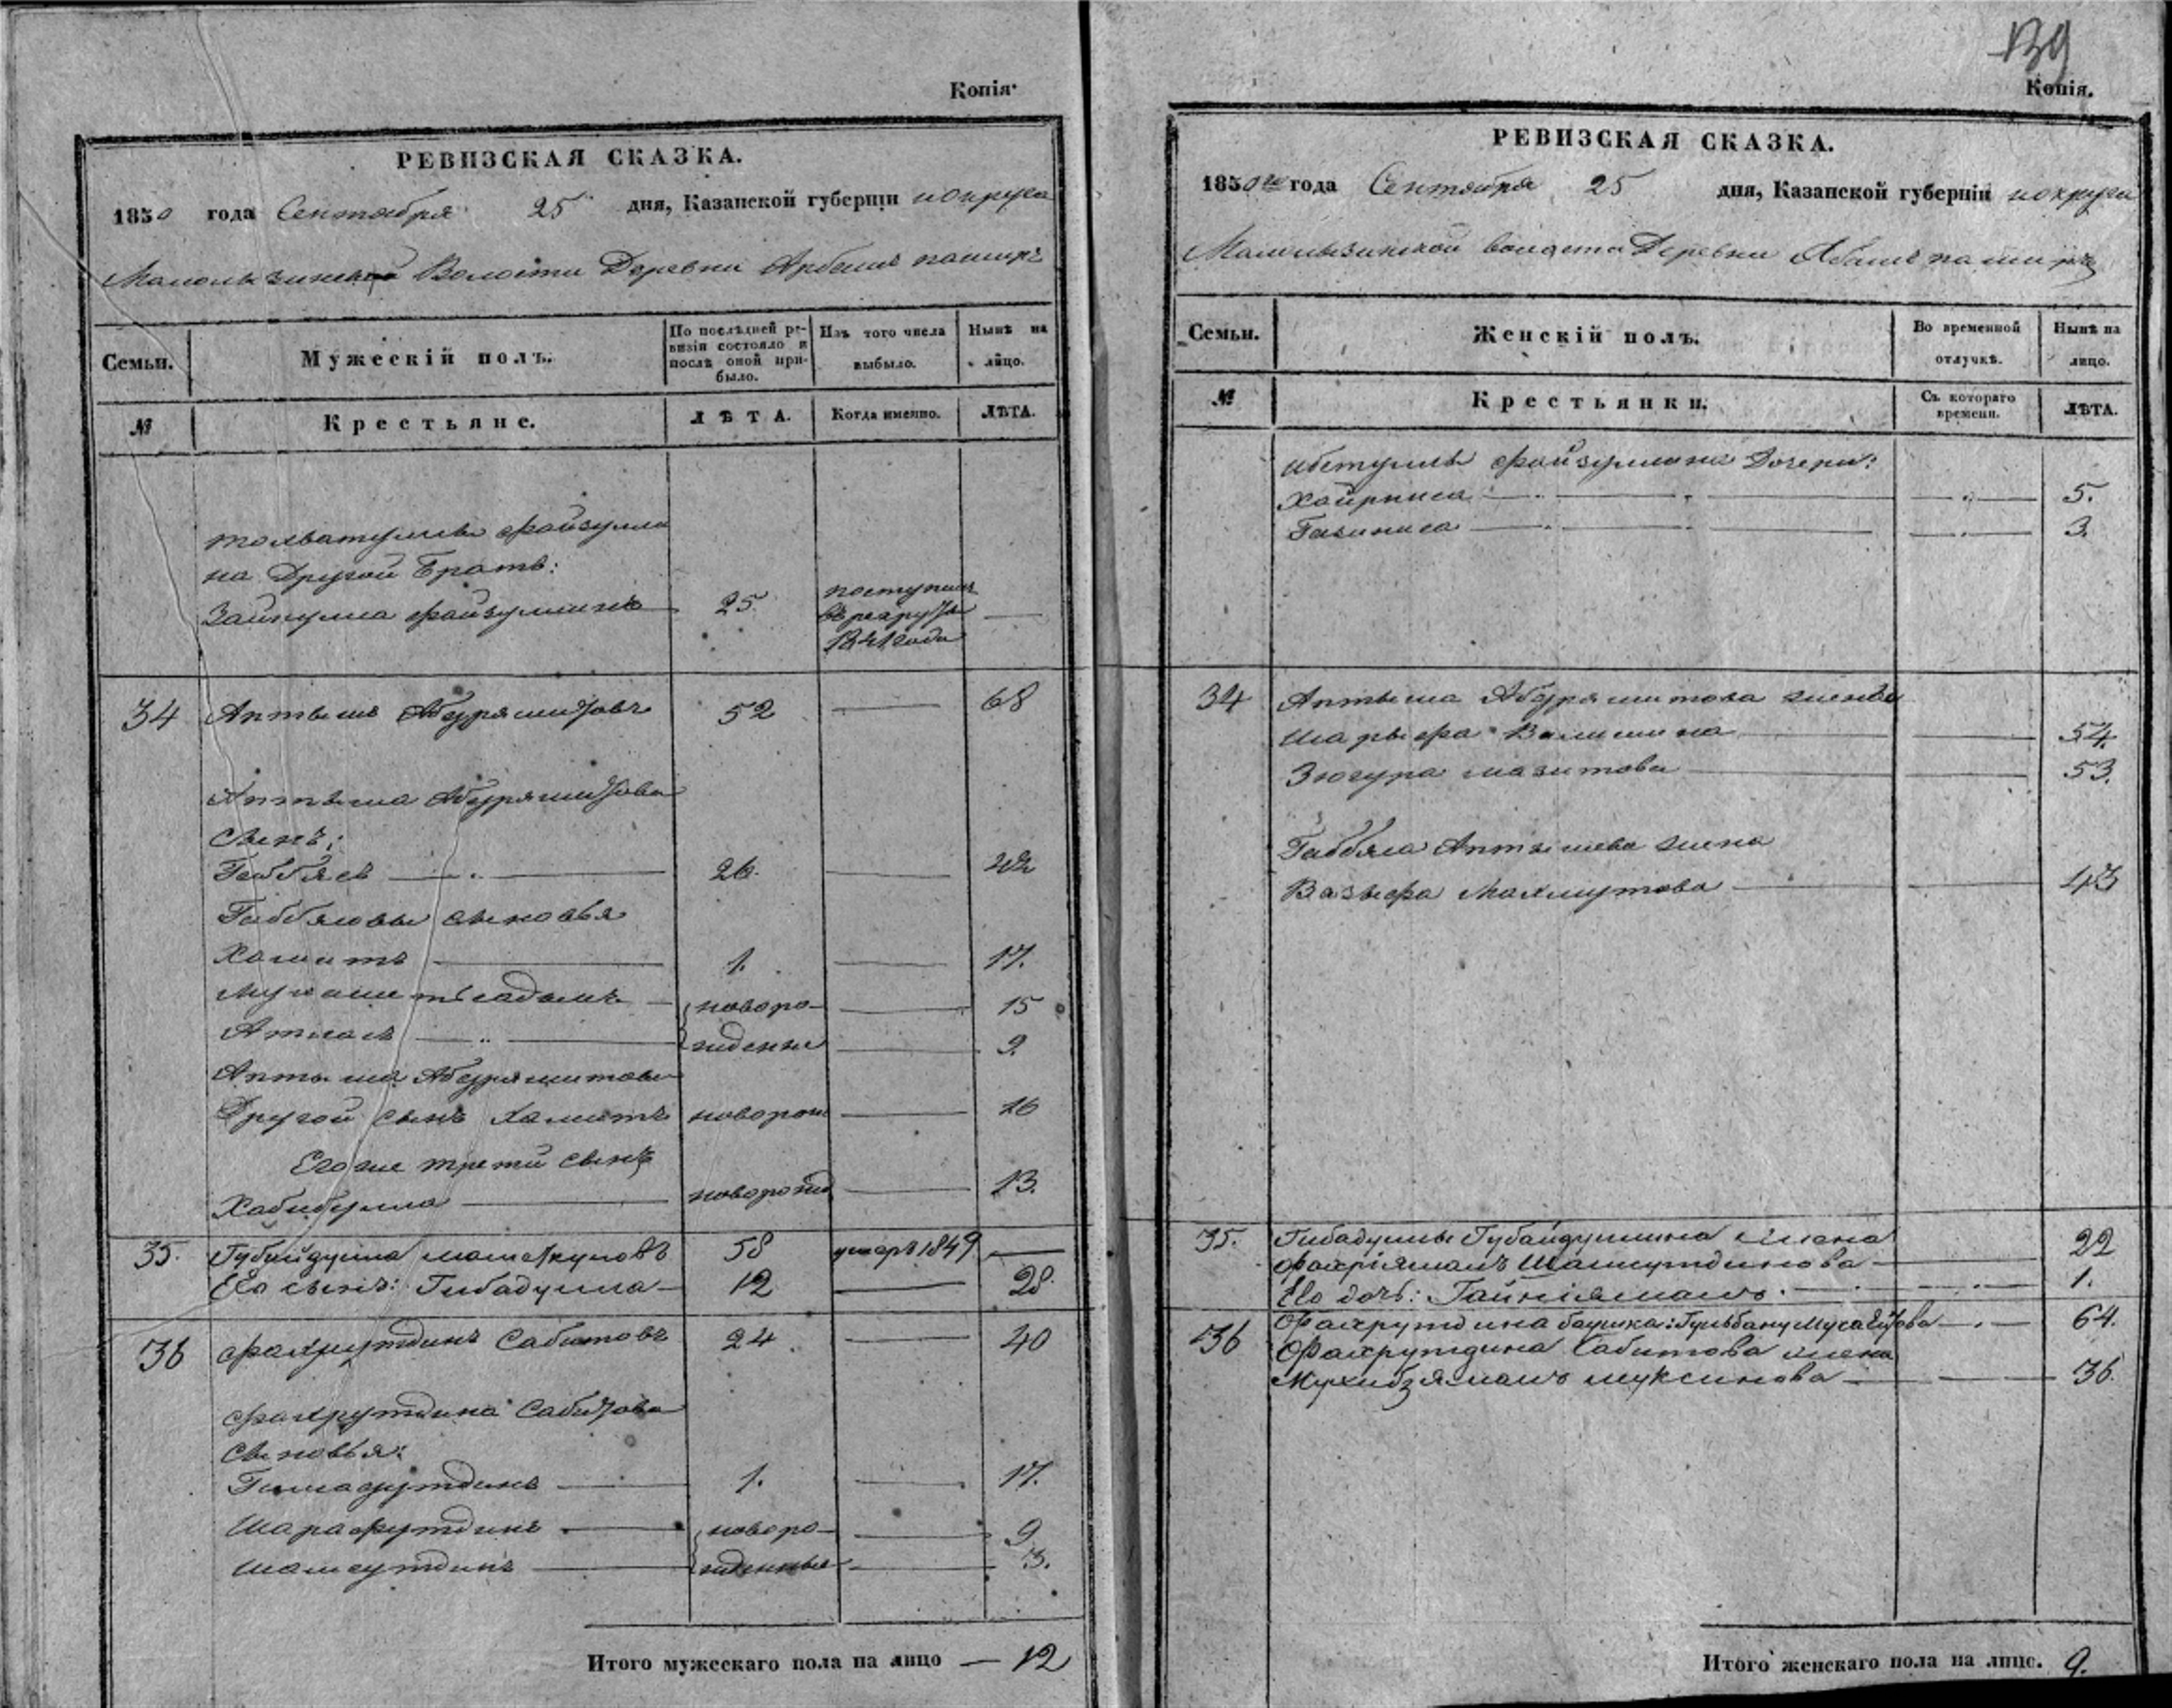 Копія.
РЕВИЗСКАЯ СКАЗКА.
1850 года Сентября 25 дня, Казанской губерніи и округа
Волости Деревни
Семьи. Мужескій полъ. По послѣдней ревизіи состояло и послѣ оной прибыло. Изъ того числа выбыло. Нынѣ на лицо.
№ Крестьяне. ЛѢТА. Когда именно. ЛѢТА.
файзулли
на Другой Братъ:
Зайнулла файзуллинъ 25. поступилъ
въ рекруты
1841 года
34 Аптышъ Абдряшитовъ 52 — 68
Аптыша Абдряшитова
Сынъ:
Габбясъ — 26. — 42
Габбясовы сыновья
Хамитъ — 1. — 17.
Мухаметьсадыкъ — новоро- — 15
Атнасъ — жденные — 9.
Аптыша Абдряшитова
Другой сынъ Хамитъ новорож — 16
Его же трети сынъ
Хабибулла — новорожд — 13.
35. Губайдулла 58 умеръ 1849 —
Его сынъ: Гибадулла — 12 — 28.
36 Фахрутдинъ Сабитовъ 24 — 40
Фахрутдина Сабитова
Сыновья:
Гимадутдинъ — 1. — 17.
Шарафутдинъ — новоро- — 9
Шамсутдинъ — жденныя — 3.
Итого мужескаго пола на лицо — 12
139
Копія.
РЕВИЗСКАЯ СКАЗКА.
1850го года Сентября 25 дня, Казанской губерніи и округа
волости Деревни
Семьи. Женскій полъ. Во временной отлучкѣ. Нынѣ на лицо.
№ Крестьянки. Съ котораго времени. ЛѢТА.
файзуллина Дочери:
Хайрниса — 5.
Газиниса — 3.
34 Аптыша Абдряшитова жены
Шарыфа Валишина — 54.
Зюгура Мазитова — 53.
Габбяса Аптышева жена
Вазыфа Махмутова — 43
35. Гибадуллы Губайдуллина жена
Фахріямалъ Шамсутдинова — 22
Его дочь: Гайніямалъ. — 1.
36 Фахрутдина баушка: Гульбану Мусагитова — 64.
Фахрутдина Сабитова жена
Мухибзямалъ Муксинова — 36.
Итого женскаго пола на лице. 9.